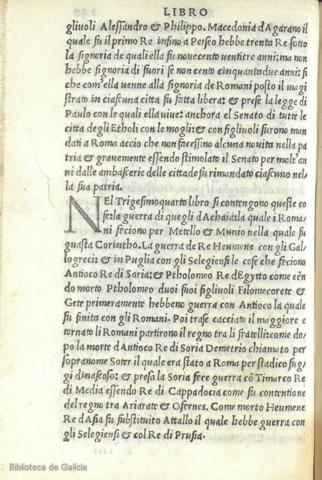 LIBRO
gliuoli Alessandro & Philippo. Macedonia da Garano il
quale fu il primo Re infino a Perseo hebbe trenta Re sotto
la signoria de quali ella fu nouecento uentitre anni: ma non
hebbe signoria di fuori se non cento cinquanta due anni: si
che com'ella uenne alla signoria de Romani posto il magi
strato in ciascuna citta fu fatta libera: & prese la legge di
Paulo con le quali ella uiue: anchora el Senato di tutte le
citta degli Etholi con le mogli: & con figliuoli furono man
dati a Roma accio che non facessino alcuna nouita nella pa
tria & grauemente essendo stimolato il Senato per molt'an
ni dalle ambascerie delle cittade fu rimandato ciascuno nel
la sua patria.
NEl Trigesimoquarto libro si contengono queste co
se la guerra di quegli d'Achaia: la quale i Roma
ni feciono per Metello & Munio nella quale fu
guasta Corintho. La guerra de Re Heumene con gli Gal
logreci: & in Puglia con gli Selegiensi le cose che feciono
Antioco Re di Soria: & Ptholomeo Re d'Egytto come eēn
do morto Ptholomeo duoi suoi figliuoli Filomecorete &
Gete primeramente hebbeno guerra con Antioco la quale
fu finita con gli Romani. Poi trase cacciato il maggiore e
tornato li Romani partirono il regno tra li fratelli: come do
po la morte d'Antioco Re di Soria Demetrio chiamato per
sopranome Soter il quale era stato a Roma per stadico fug
gi di nascoso: & presa la Soria fece guerra cō Timarco Re
di Media essendo Re di Cappadocia come fu contentione
del regno tra Ariarate & Ofernes. Come morto Heumene
Re d'Asia fu substituito Attallo il quale hebbe guerra con
gli Selegiensi & col Re di Prusia.
Biblioteca de Galicia